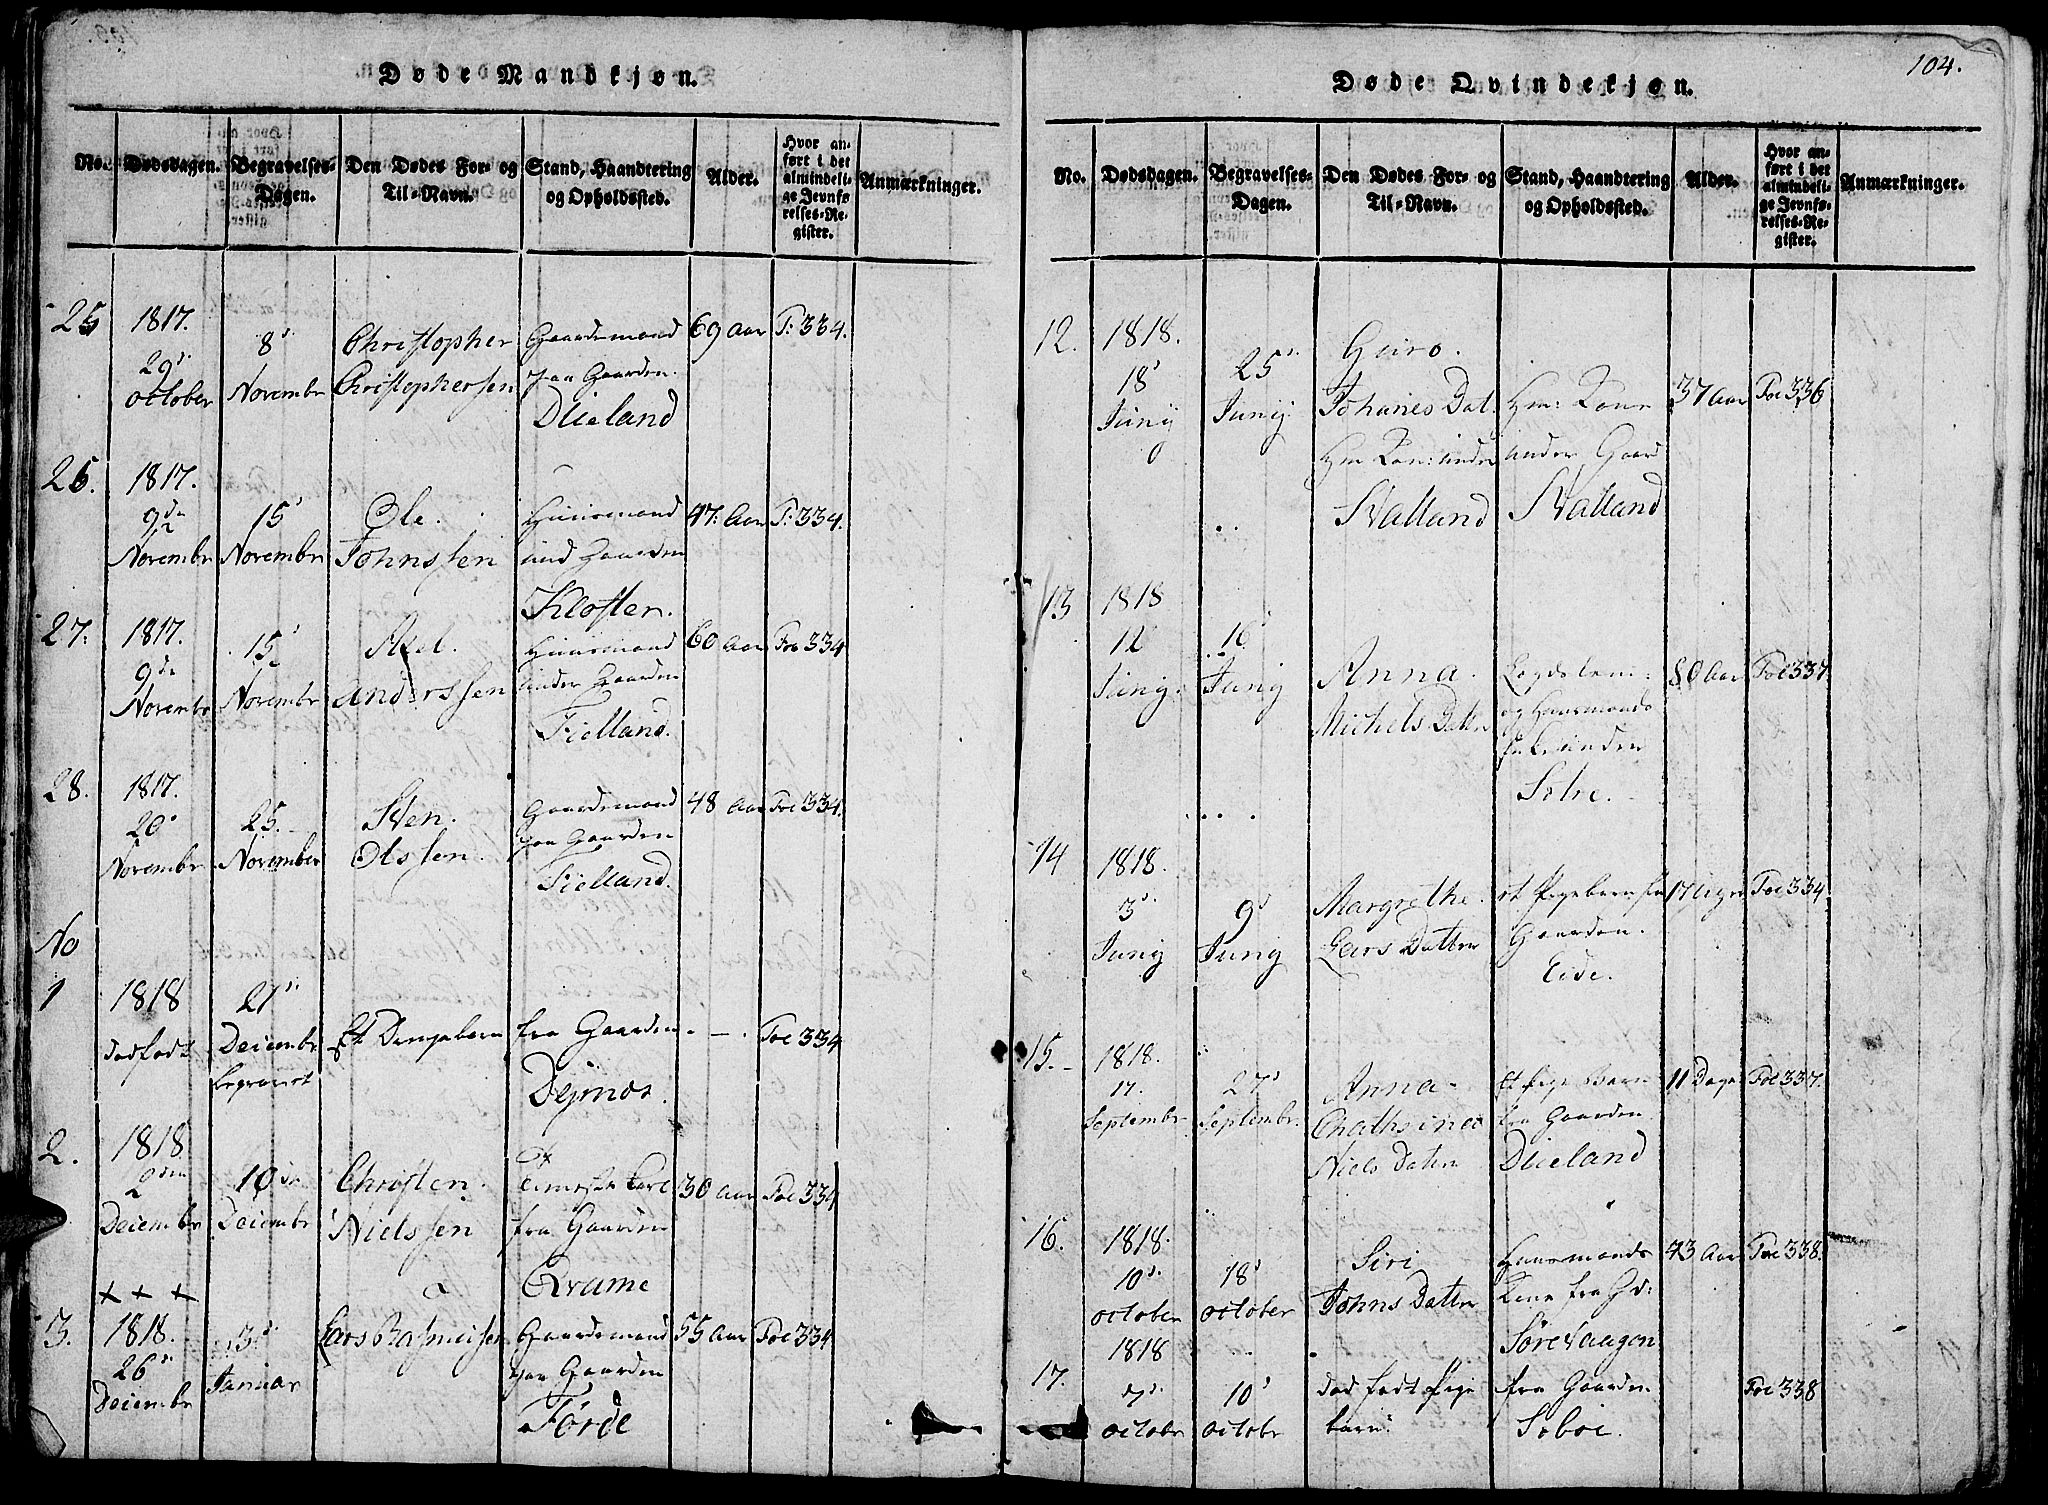 Døde Mandkjøn.
No.
Dødsdagen.
Begravelses-
Dagen.
Den Dødes For- og
Til-Navn.
Stand, Haandtering
og Opholdssted.
Alder.
Hvor an-
ført i det
almindeli-
ge Jevnfø-
relses-Re-
gister.
Anmærkninger.
25
1817.
29d
october
8d
Novembr
Christopher
Christophersen
Gaardemand
paa Gaarden
Dueland
69 Aar
F: 334.
26.
1817.
9de
Novembr
15d
Novembr
Ole.
Johnssen
Huusmand
und Gaarden
Kloster.
47: Aar
F: 334.
27.
1817.
9de
Novembr
15d
Novembr
Axel.
Anderssen
Huusmand
under Gaarden
Fielland.
60 Aar
Foe 334
28.
1817.
20d
Novembr
25.
November
Sven.
Olssen.
Gaardemand
paa Gaarden
Fielland.
48 Aar
Foe 334.
No
1
1818
dødfødt
21d
Deiembr
begravet
Et Drengebarn
fra Gaarden
- - .
Foe 334
2.
1818.
2den
Deiembr
10de
Deiembr
Christen.
Nielssen
fra Gaarden
Qvame
30 Aar
Foe 334
+ + +
3.
1818.
26d
Deiembr
3d
Januar
Lars Rasmussen
Gaardemand
paa Gaarden
Førde
55 Aar
Foe 334
104.
Døde Qvindekjøn.
No.
Dødsdagen.
Begravelses-
Dagen.
Den Dødes For- og
Til-Navn.
Stand, Haandtering
og Opholdssted.
Alder.
Hvor an-
ført i det
almindeli-
ge Jevnfø-
relses-Re-
gister.
Anmærkninger.
12.
1818.
18d
Junij
25d
Junij
Guro.
Johanes Dat.
Hm Kone under
Svalland
Hm: Kone
under Gaar
Svalland
37 Aar
Foe 336
13
1818
12
Junij.
16
Junij
Anna.
Michels Datter
Lægdslem:
og Huusmands
under
80 Aar
Foe 337
14
1818.
3d
Junij
9d
Junij
Margrethe.
Lars Datter
et Pigebarn fra
Gaarden.
Eide.
17 Uger
Foe 334.
15.
1818.
17.
Septembr
27d
Septembr.
Anna
Chathrinea
Niels Datter
Et Pige Barn
fra Gaarden
Dueland
11 Dage
Foe 337.
16.
1818.
10d.
october
18d
october
Siri
Johns Datter
Huusmands
Kone fra Gd:
Sørevaagen
43 Aar
Foe 338.
17.
1818
7d.
octobr
10d
octobr
død født Pige
barn
fra Gaarden
Søboe.
Foe 338